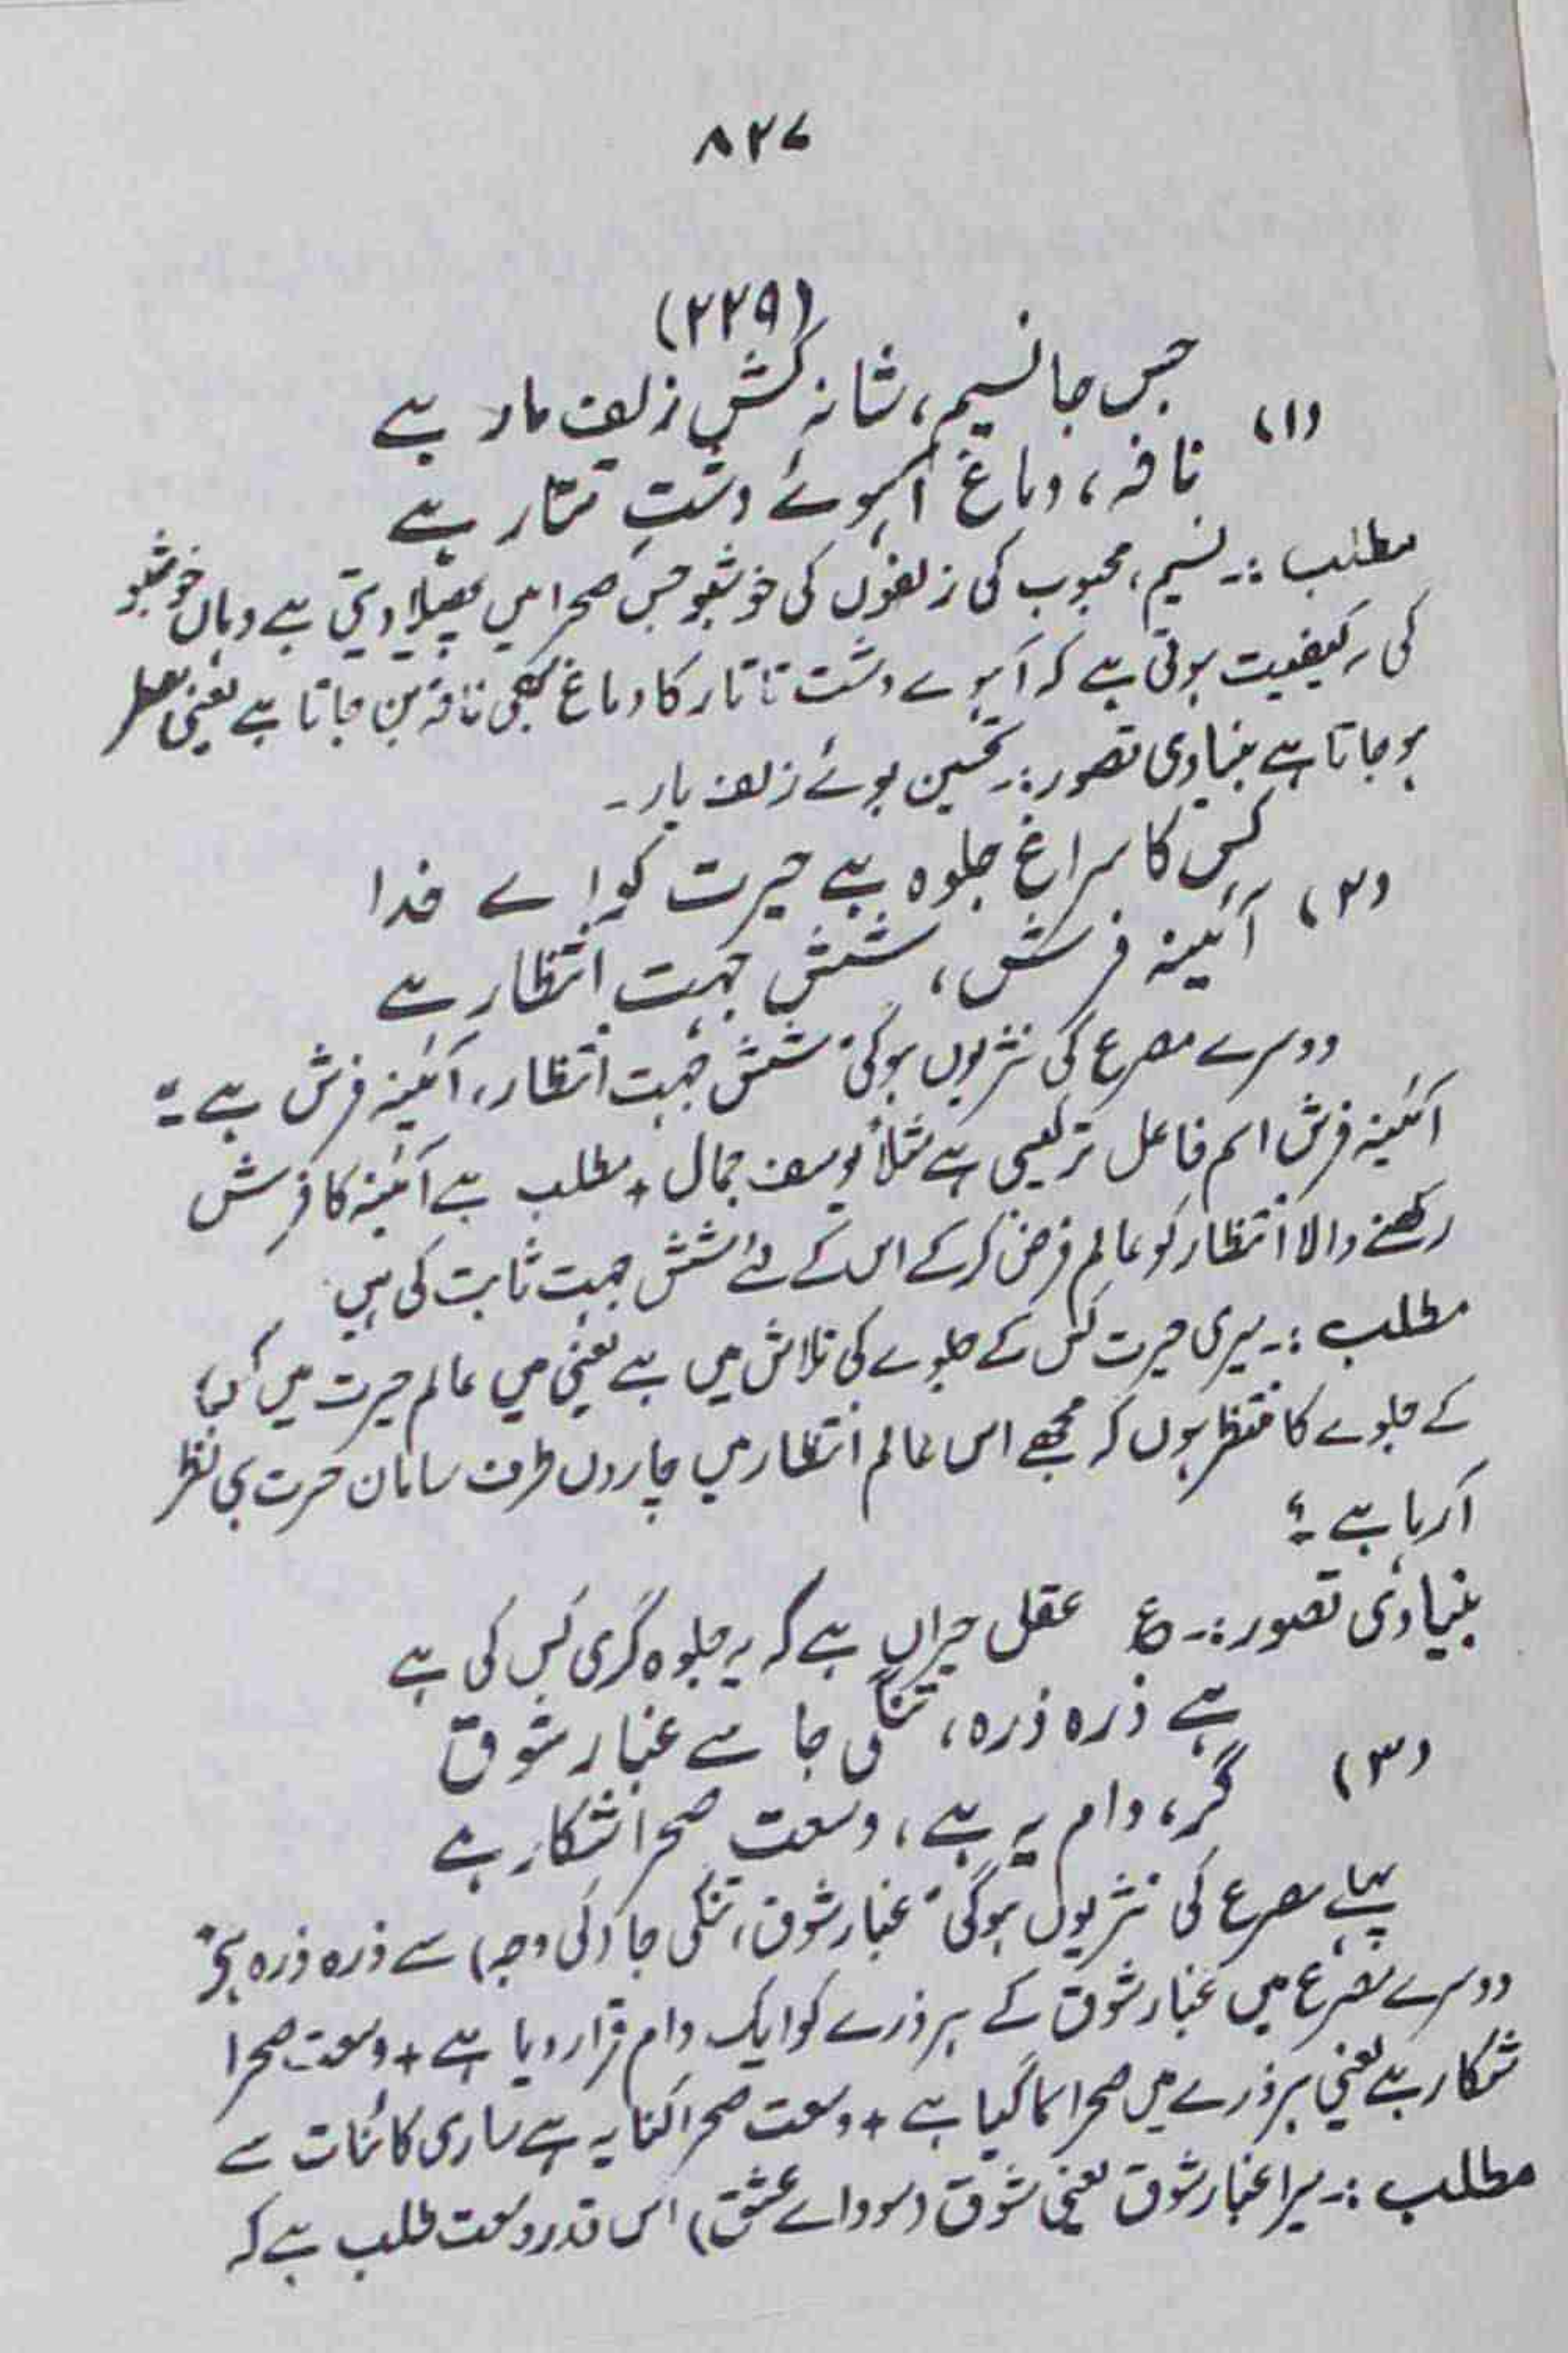 ۸۲۷
(۲۲۹)
(۱) جس جا نسیم، شانہ کشِ زلف یار ہے
نافہ، دماغ آہوئے دشتِ تتار ہے
مطلب :۔ نسیم، محبوب کی زلفوں کی خوشبو جس صحرا میں پھیلا دیتی ہے وہاں خوشبو
کی یہ کیفیت ہوتی ہے کہ آہوے دشت تاتار کا دماغ بھی نافہ بن جاتا ہے یعنی معطر
ہو جاتا ہے بنیادی تصور :۔ تحسین بوئے زلف یار۔
(۲) کس کا سراغ جلوہ ہے حیرت کو اے خدا
آئینہ فرش، شش جہت انتظار ہے
دوسرے مصرع کی نثر یوں ہوگی "شش جہت انتظار، آئینہ فرش ہے"
آئینہ فرش اسم فاعل ترکیبی ہے مثلاً یوسف جمال + مطلب ہے آئینہ کا فرش
رکھنے والا انتظار کو عالم فرض کرکے اس کے لئے شش جہت ثابت کی ہیں
مطلب :۔ میری حیرت کس کے جلوے کی تلاش میں ہے یعنی میں عالم حیرت میں
کے جلوے کا منتظر ہوں کہ مجھے اس عالم انتظار میں چاروں طرف سامان حیرت ہی نظر
آرہا ہے ؟
بنیادی تصور :۔ ع عقل حیراں ہے کہ یہ جلوہ گری کس کی ہے
(۳) ہے ذرہ ذرہ، تنگی جا سے غبار شوق
گر، دام یہ ہے، وسعت صحرا شکار ہے
پہلے مصرع کی نثر یوں ہوگی "غبار شوق، تنگی جا (کی وجہ) سے ذرہ ذرہ ہے"
دوسرے مصرع میں غبار شوق کے ہر ذرے کو ایک دام قرار دیا ہے + وسعت صحرا
شکار ہے یعنی ہر ذرے میں صحرا سما گیا ہے + وسعت صحرا کنایہ ہے ساری کائنات سے
مطلب :۔ میرا غبار شوق یعنی شوق (سوداے عشق) اس قدر وسعت طلب ہے کہ